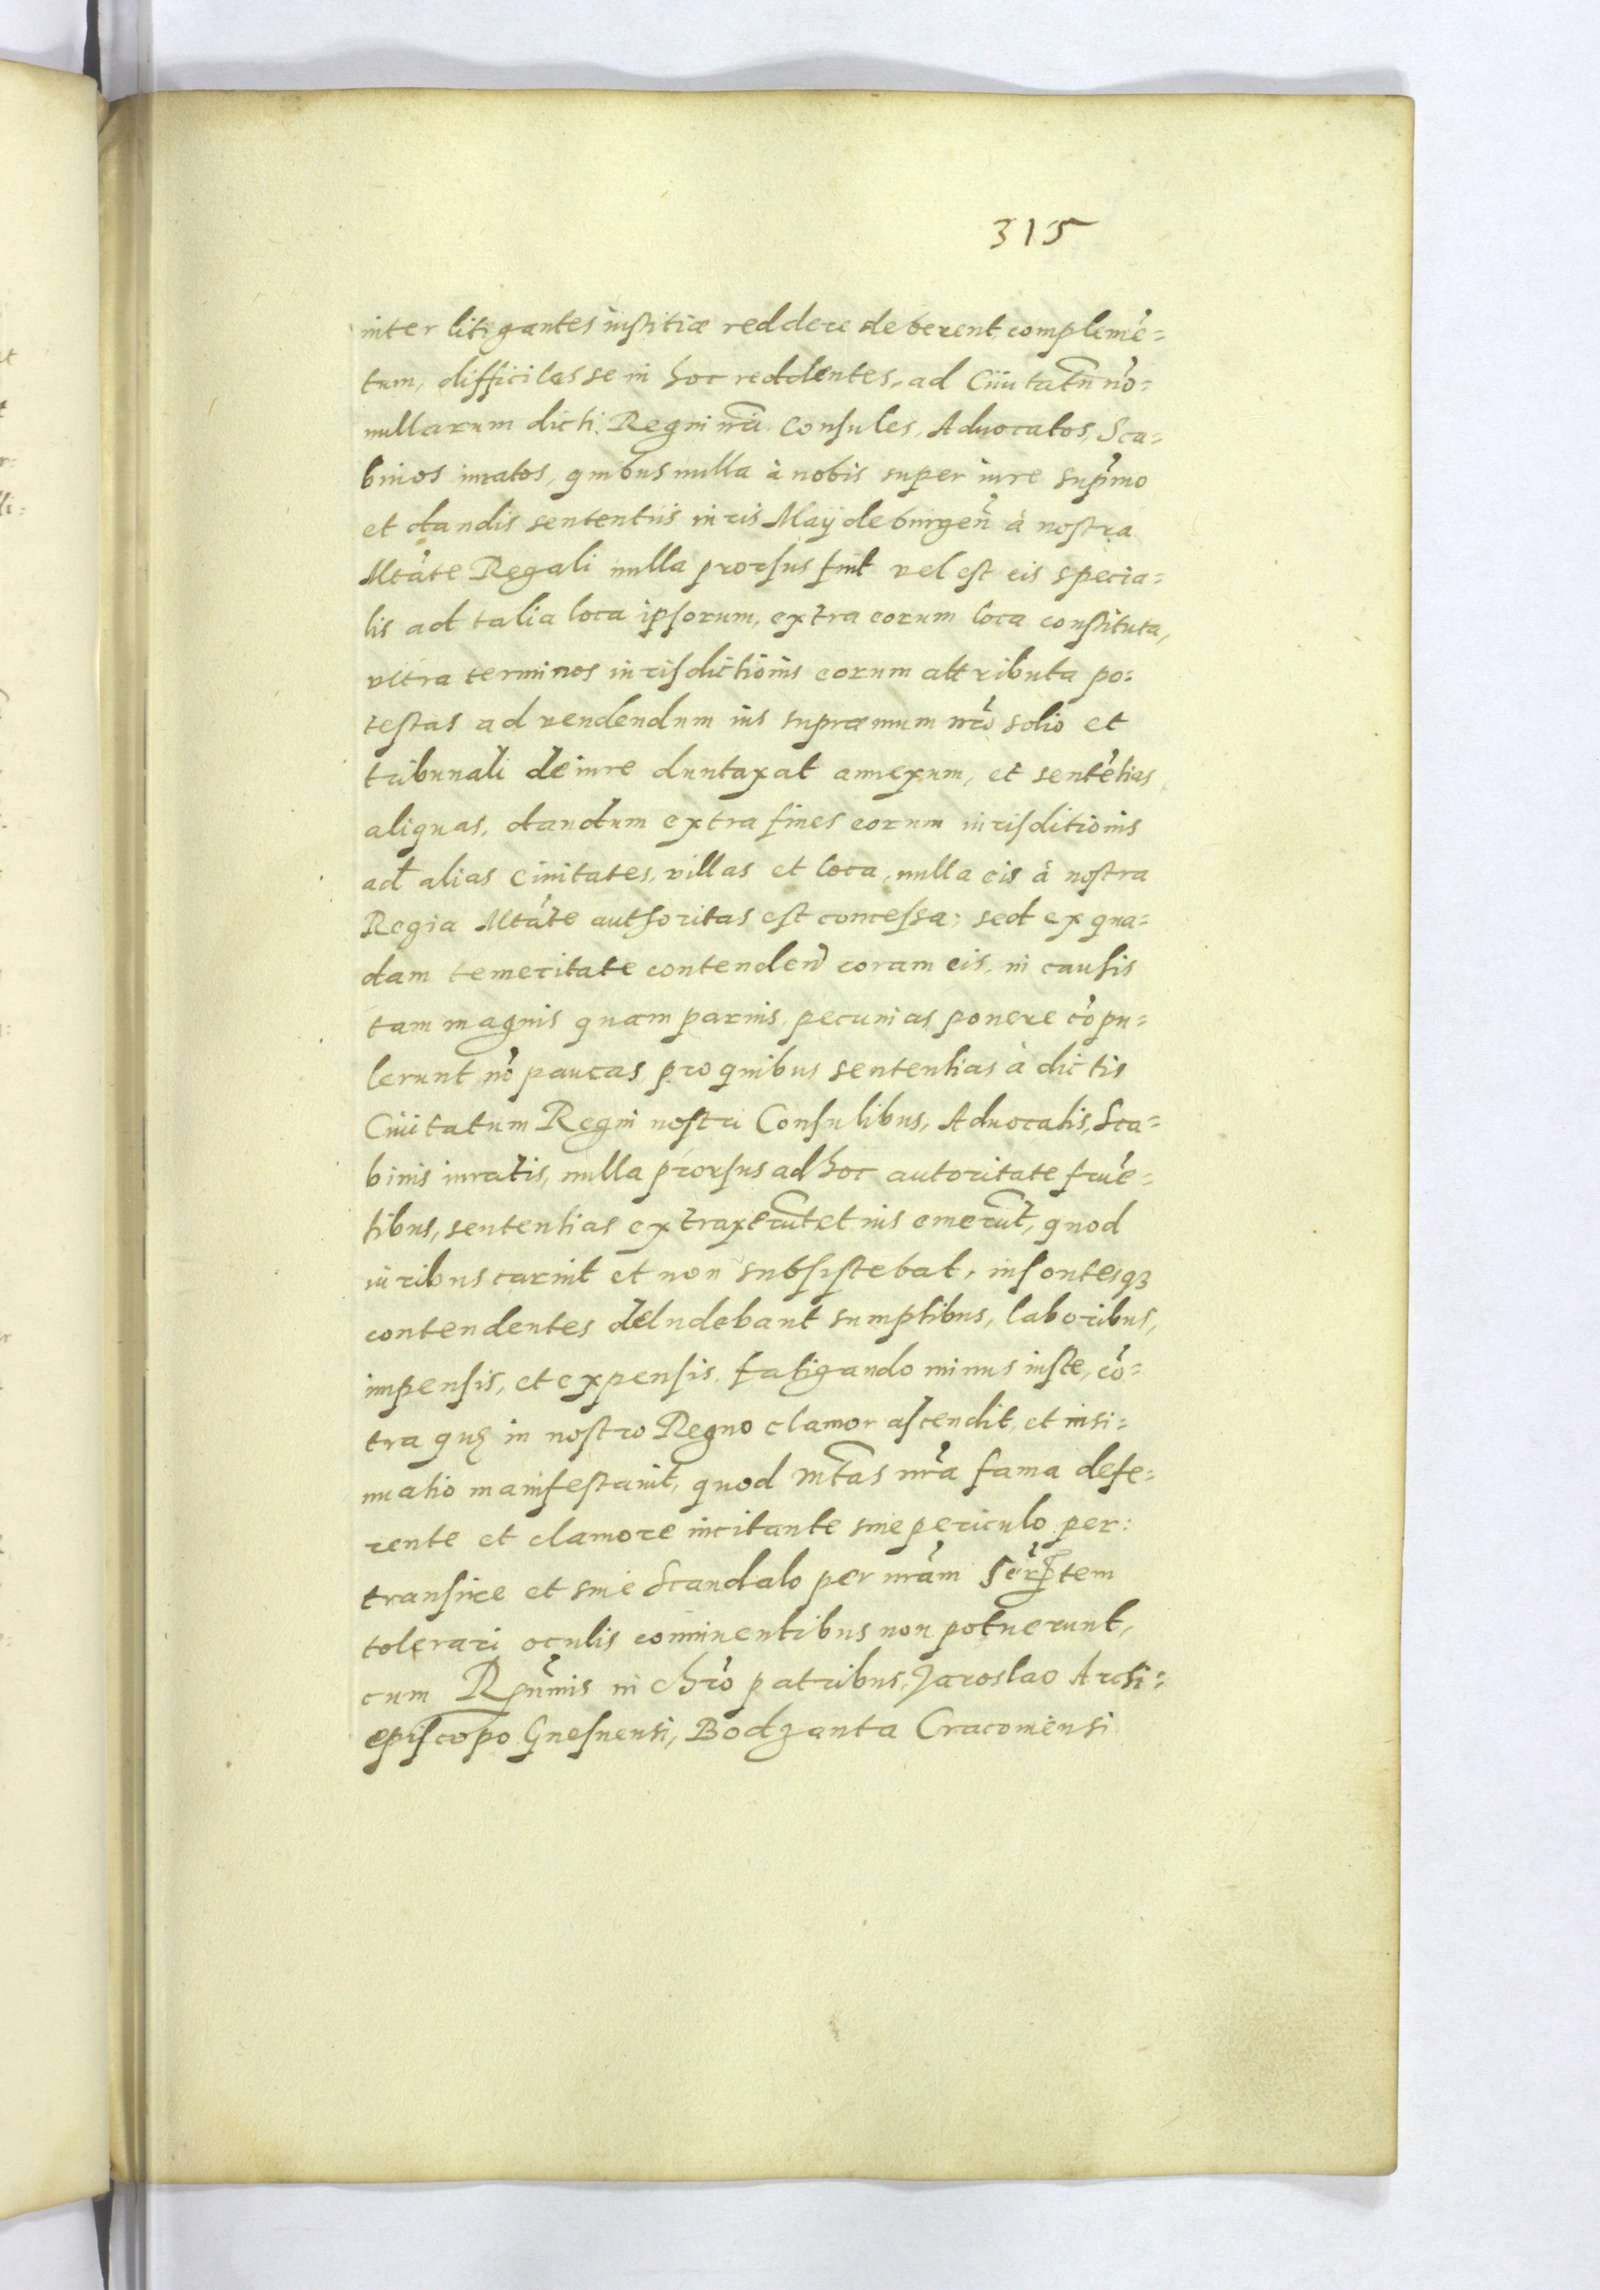 315
inter litigantes iustitiæ reddere deberent complemẽ=
tum, difficiles se in hoc reddentes, ad Ciuitatũ nõ=
nullarum dicti Regni nr̃i Consules, Aduocatos, Sca=
binos iuratos, quibus nulla à nobis super iure supr̃mo
et dandis sententiis iuris Maÿdeburgeñ à nostra
Mtãte Regali nulla prorsus fuit vel est eis specia=
lis ad talia loca ipsorum, extra eorum loca constituta,
vltra terminos iurisdictionis eorum attributa po=
testas ad vendendum ius supræmum nr̃o solio et
tribunali de iure duntaxat annexum, et sentẽtias
aliquas, dandum extra fines eorum iurisditionis
ad alias Ciuitates, villas et loca, nulla eis à nostra
Regia Mtãte authoritas est concessa; sed ex qua=
dam temeritate contendeñ coram eis, in causis
tam magnis quam paruis, pecunias ponere cõpu=
lerunt nõ paucas, pro quibus sententias à dictis
Ciuitatum Regni nostri Consulibus, Aduocatis, Sca=
binis iuratis, nulla prorsus ad hoc autoritate fruẽ=
tibus, sententias extraxerũt et ius emerũt, quod
iuribus caruit et non subsistebat, insontesq3
contendentes deludebant sumptibus, laboribus,
impensis, et expensis, fatigando minus iuste, cõ=
tra quę in nostro Regno clamor ascendit, et insi=
nuatio manifestauit, quod Mt̃as nr̃a fama defe=
rente et clamore incitante sine periculo per=
transire et sine Scandalo per nr̃am Ser̃tem
tolerari oculis conniuentibus non potuerunt,
cum Rñmis in Chr̃o patribus, Jaroslao Archi=
episcopo Gnesnensi, Bodzanta Cracouiensi